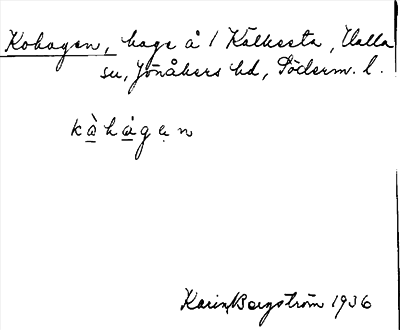 Kohagen, hage å 1 Kälkesta, Halla
sn, Jönåkers hd, Söderm. l.
kȧ̀hȧgẹn
Karin Bergström 1936